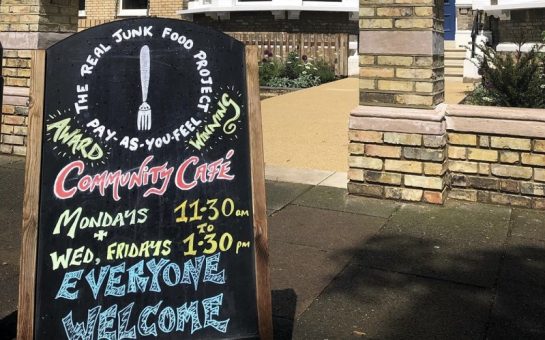 THE REAL JUNK FOOD PROJECT
PAY-AS-YOU-FEEL
AWARD WINNING
COMMUNITY CAFÉ
MONDAYS 11·30am
+ TO
WED, FRIDAYS 1·30pm
EVERYONE
WELCOME